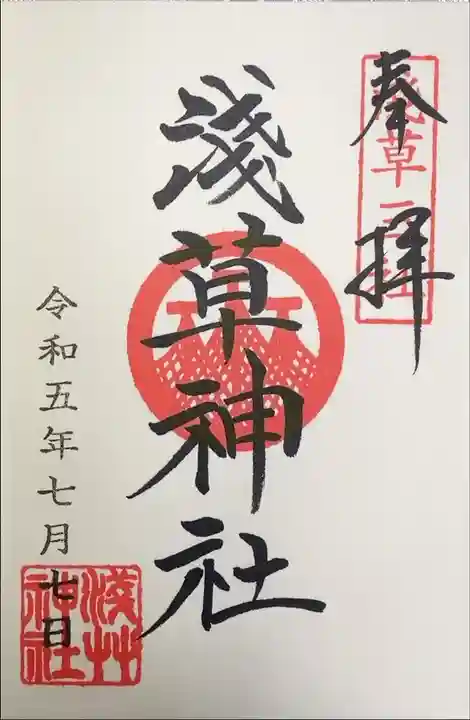 奉拝
浅草三社
淺草神社
令和五年七月七日
淺艸
神社